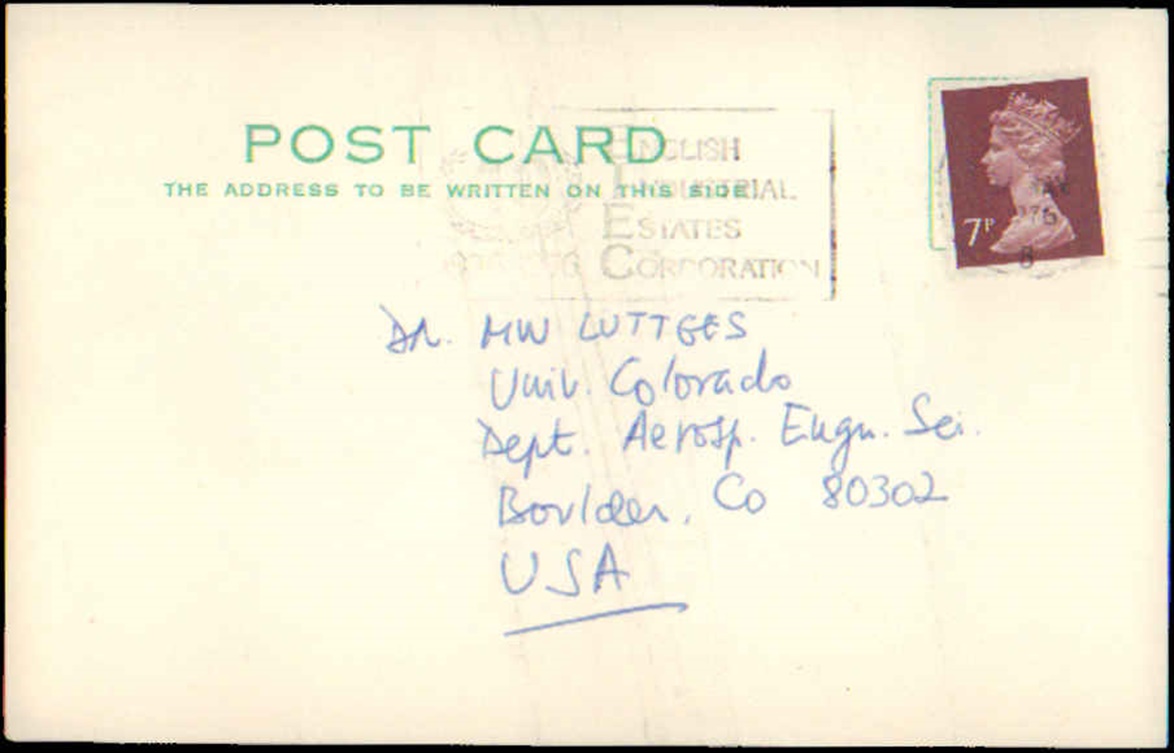 POST CARD
THE ADDRESS TO BE WRITTEN ON THIS SIDE
ENGLISH
INDUSTRIAL
ESTATES
CORPORATION
7P
8
Dr. MW LUTTGES
Univ. Colorado
Dept. Aerosp. Engn. Sci.
Boulder, Co 80302
USA